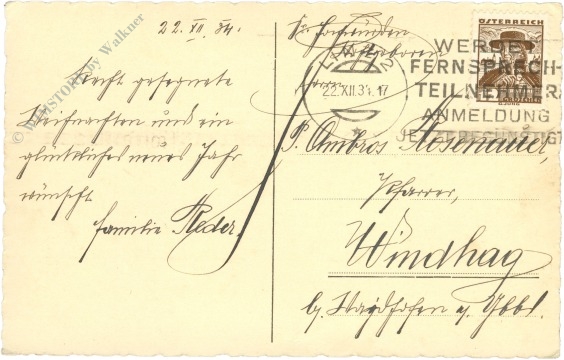 22. XII. 34.
Recht gesegnete
Weihnachten und ein
glückliches neues Jahr
wünscht
Familie Reder.
© WIMSTORE by Walkner
ÖSTERREICH
LINZ 2
22.XII.34.17
WERDET
FERNSPRECH-
TEILNEHMER
ANMELDUNG
JETZT BEGÜNSTIGT
Sr. Hochwürden
P. Ambros Rosenauer,
Pfarrer,
Windhag
b. Waidhofen a. Ybbs.